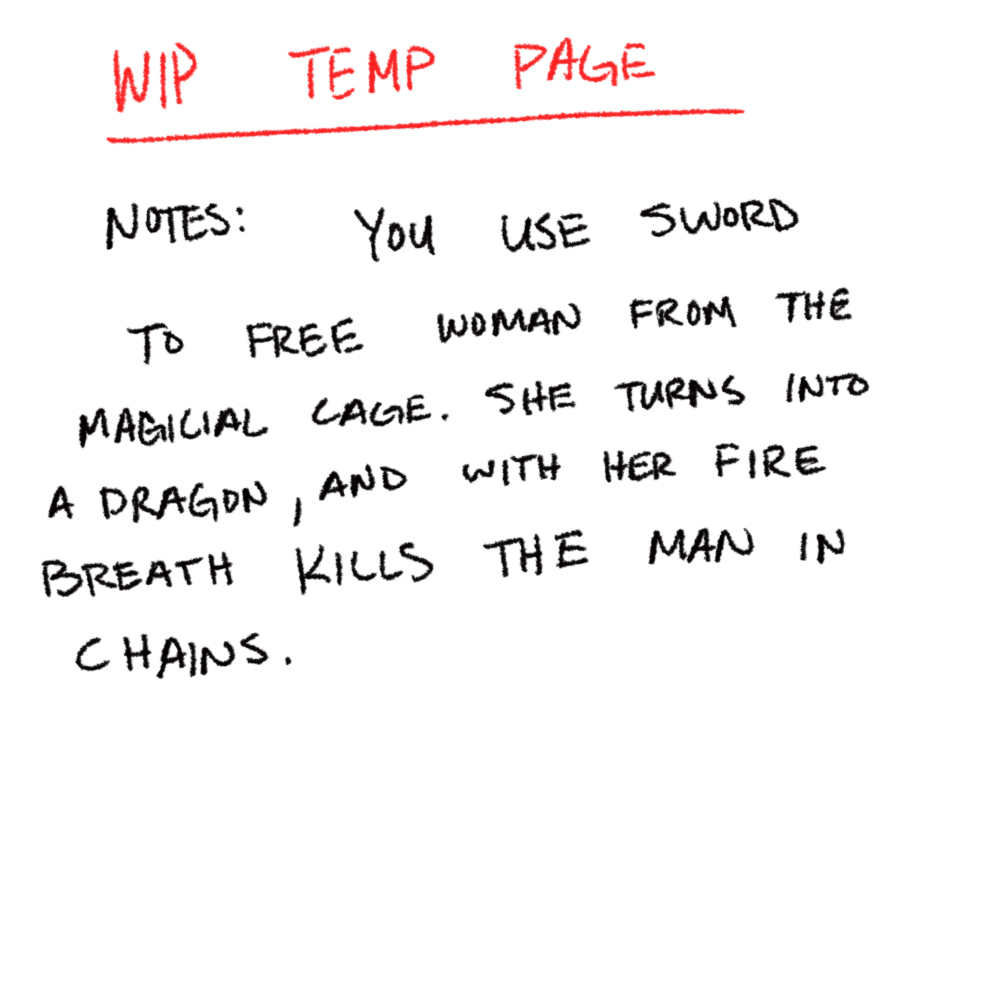 WIP TEMP PAGE
NOTES: YOU USE SWORD
TO FREE WOMAN FROM THE
MAGICIAL CAGE. SHE TURNS INTO
A DRAGON, AND WITH HER FIRE
BREATH KILLS THE MAN IN
CHAINS.